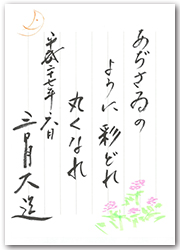 あぢさゐの
ように彩どれ
丸くなれ
平成二十七年六月
三日月大造